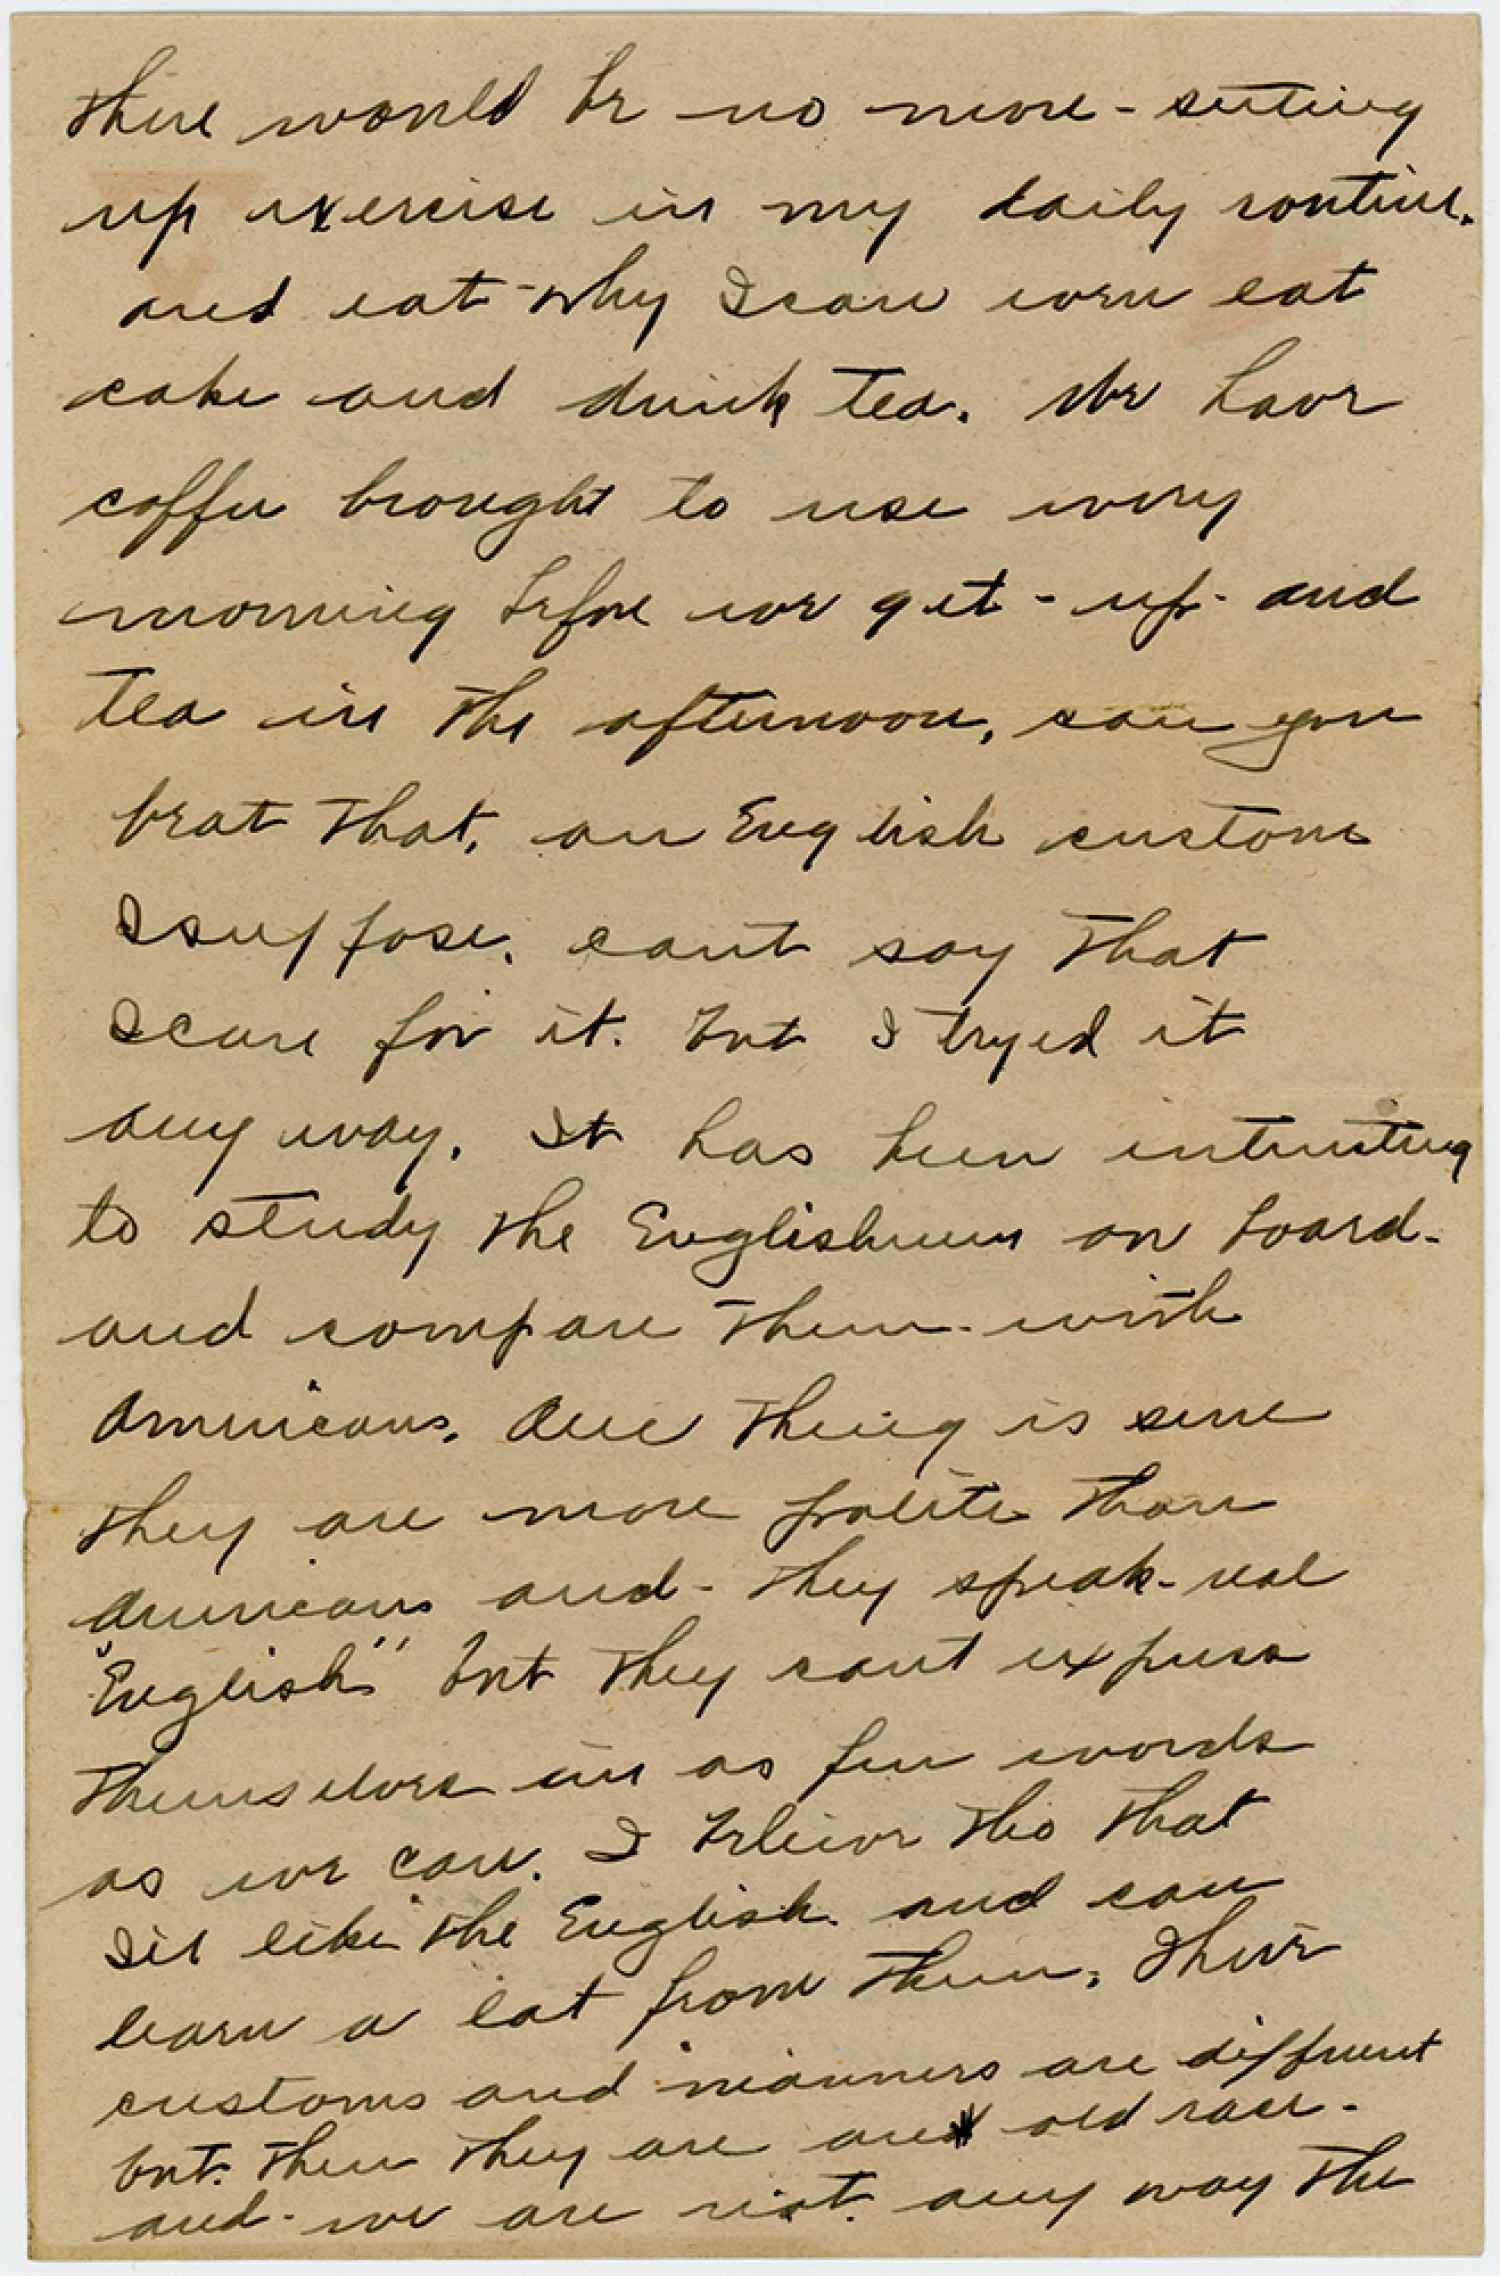 there would be no more - setting
up exercise in my daily routine.
and eat - why I can even eat
cake and drink tea. We have
coffee brought to use every
morning before we get - up - and
tea in the afternoon, can you
beat that, an English custom
I suppose. cant say that
I care for it. but I tryed it
any way. It has been intersting
to study the Englishmen on board -
and compare them - with
Americans. One thing is sure
they are more polite than
Americans and - they speak - real
"English" but they cant express
themselves in as few words
as we can. I believe tho that
I'll like the English. and can
learn a lot from them, Their
customs and manners are diffrent
but. then they are an old race -
and - we are not. any way the